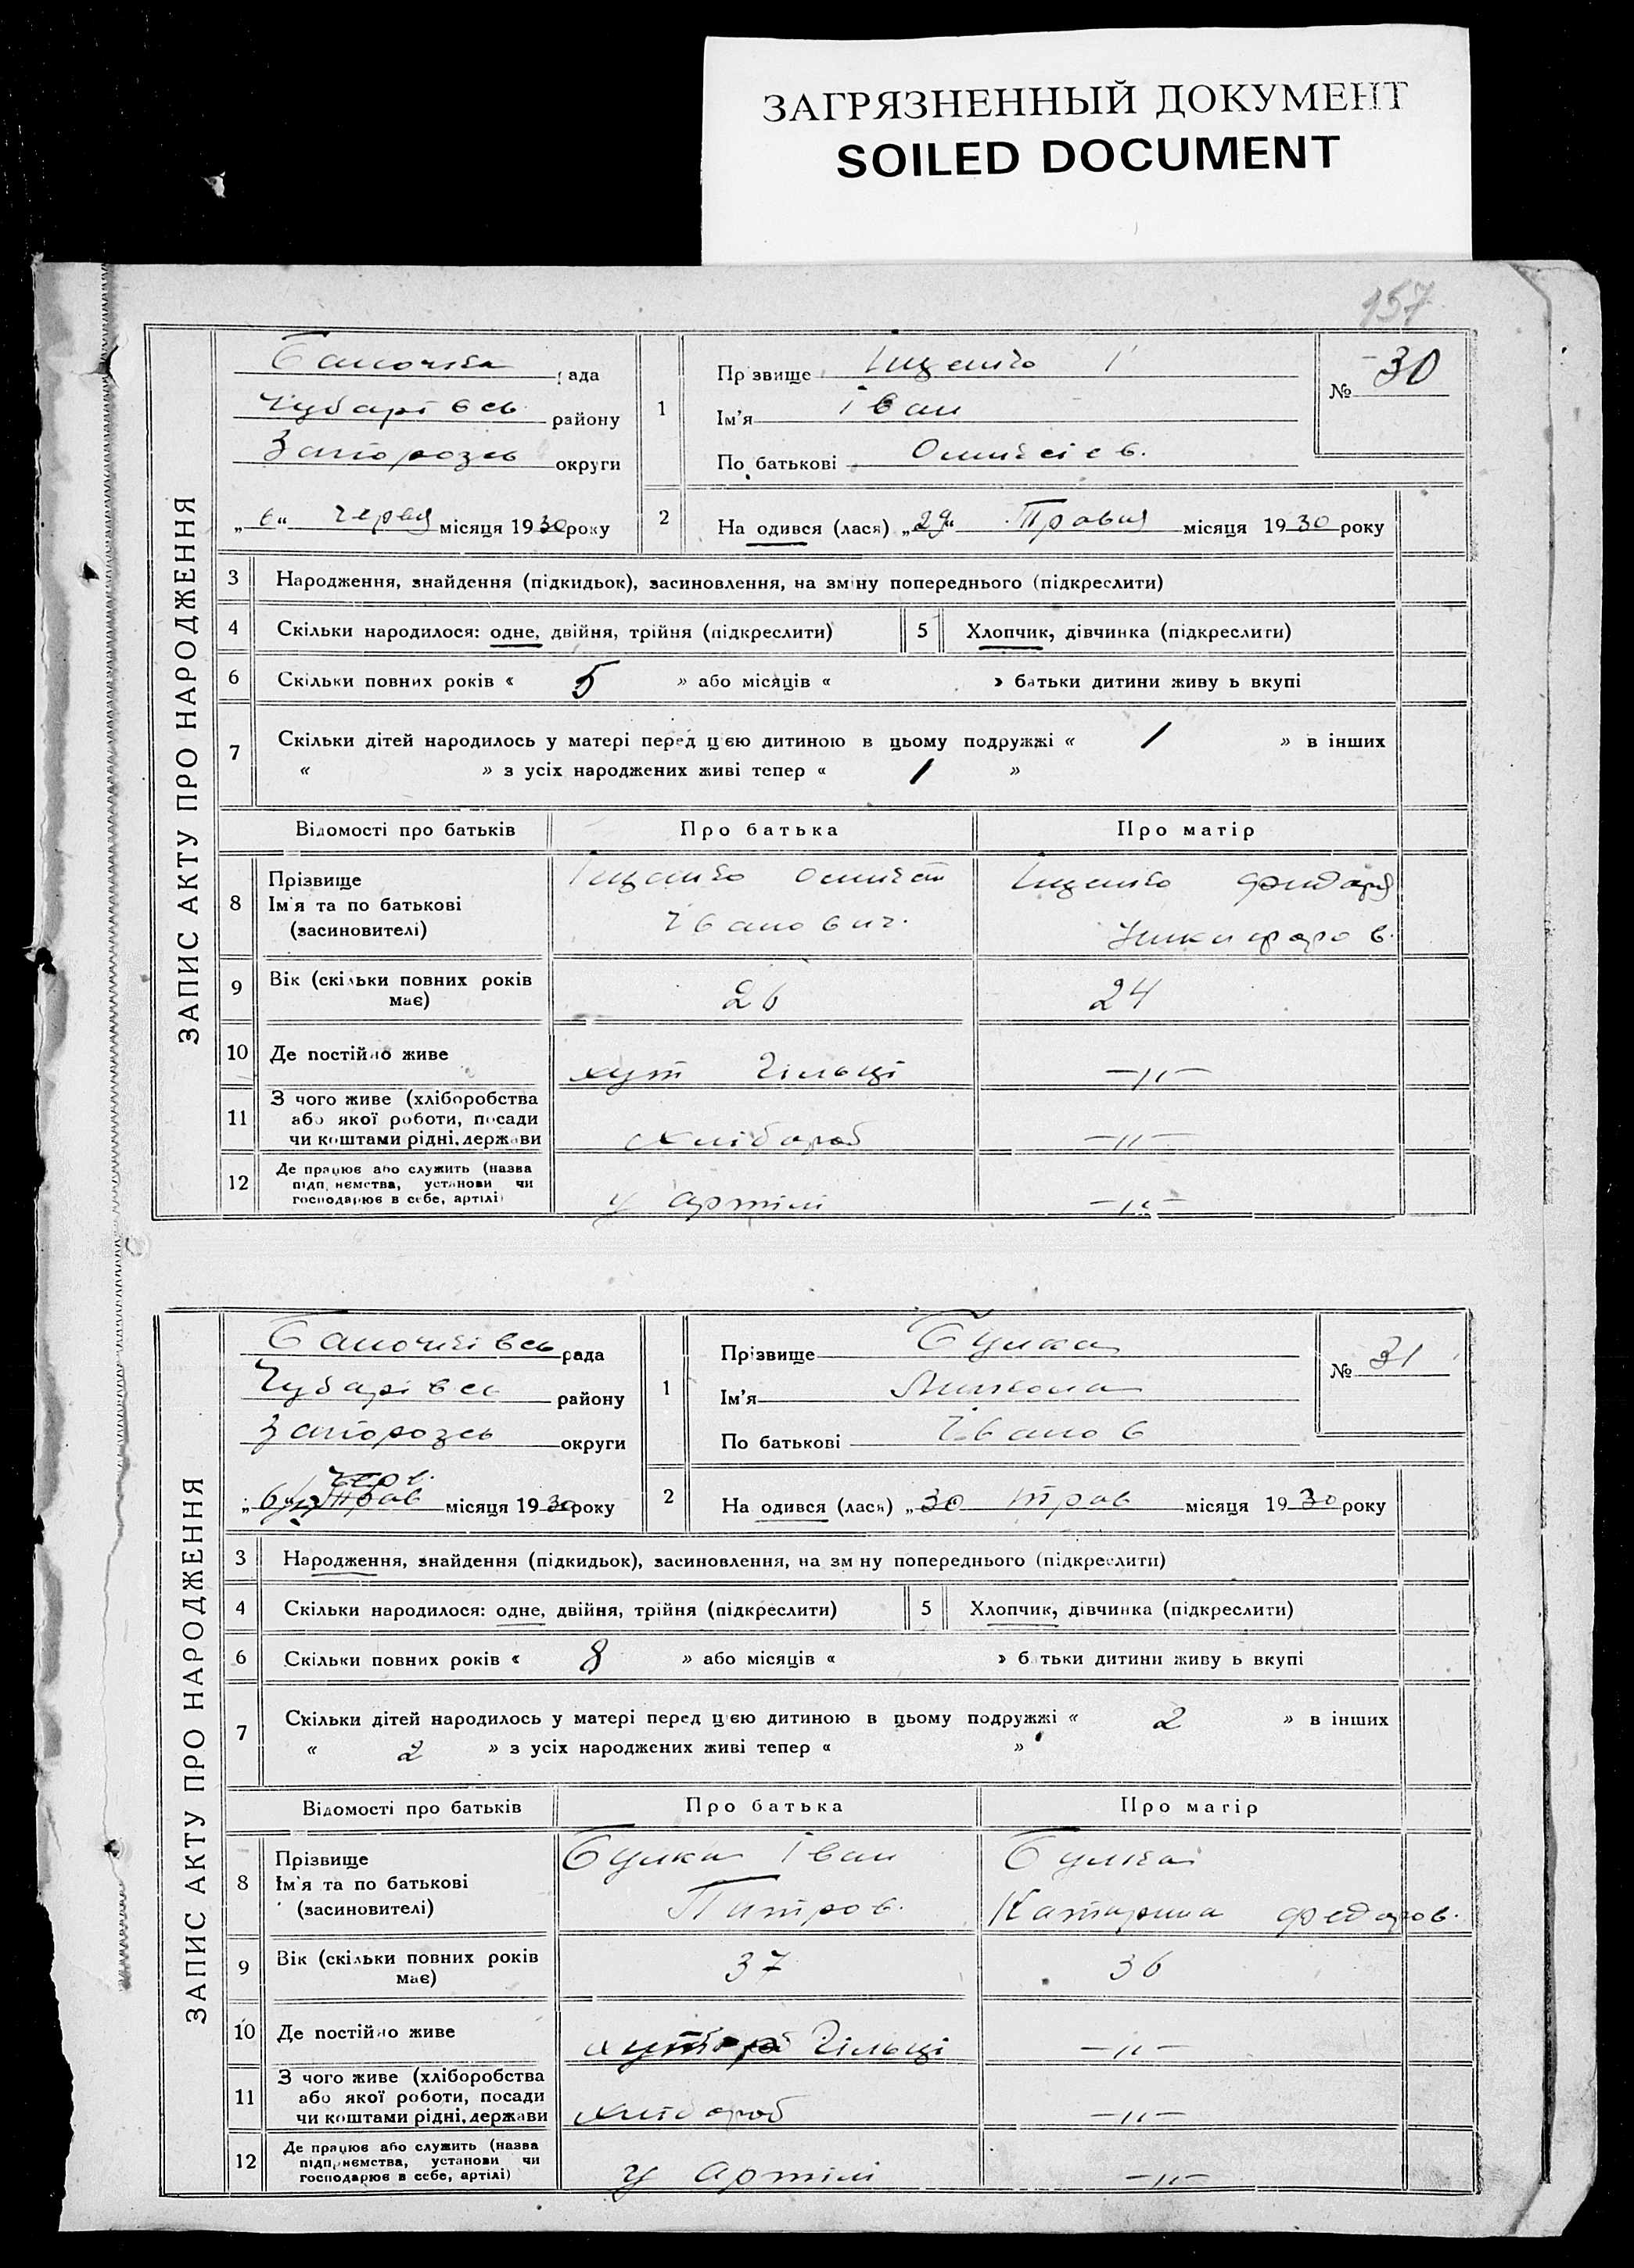 ЗАГРЯЗНЕННЫЙ ДОКУМЕНТ
SOILED DOCUMENT
157
ЗАПИС АКТУ ПРО НАРОДЖЕННЯ
рада
Чубарівсь району
Запорозсь округи
„6“ червня місяця 1930 року
1
Прізвище Іщенко
Ім'я Іван
По батькові
№ 30
2
На одився (лася) „29“ Травня місяця 1930 року
3 Народження, знайдення (підкидьок), засиновлення, на зміну попереднього (підкреслити)
4 Скільки народилося: одне, двійня, трійня (підкреслити)
5 Хлопчик, дівчинка (підкреслити)
6 Скільки повних років « 5 » або місяців « » батьки дитини живу ь вкупі
7 Скільки дітей народилось у матері перед цією дитиною в цьому подружжі « 1 » в інших
« » з усіх народжених живі тепер « 1 »
Відомості про батьків Про батька Про матір
8 Прізвище
Ім'я та по батькові
(засновителі)
Іщенко
Іванович.
Іщенко
9 Вік (скільки повних років
має)
26 24
10 Де постійно живе хут Гільці —〃—
11 З чого живе (хліборобства
або якої роботи, посади
чи коштами рідні, держави
хлібороб —〃—
12 Де працює або служить (назва
підприємства, установи чи
господарює в себе, артілі)
у артілі —〃—
ЗАПИС АКТУ ПРО НАРОДЖЕННЯ
рада
Чубарівсь району
Запорозсь округи
„6“ Черв. місяця 1930 року
1
Прізвище Булка
Ім'я Микола
По батькові Іванов
№ 31
2
На одився (лася) „30 трав місяця 1930 року
3 Народження, знайдення (підкидьок), засиновлення, на зм ну попереднього (підкреслити)
4 Скільки народилося: одне, двійня, трійня (підкреслити)
5 Хлопчик, дівчинка (підкреслити)
6 Скільки повних років « 8 » або місяців « » батьки дитини живу ь вкупі
7 Скільки дітей народилось у матері перед цією дитиною в цьому подружжі « 2 » в інших
« 2 » з усіх народжених живі тепер « »
Відомості про батьків Про батька Про матір
8 Прізвище
Ім'я та по батькові
(засиновителі)
Булка Іван
Питров.
Булка
Катирина Федоров.
9 Вік (скільки повних років
має)
37 36
10 Де постійно живе хутор Гільці —〃—
11 З чого живе (хліборобства
або якої роботи, посади
чи коштами рідні, держави
хлібороб —〃—
12 Де працює або служить (назва
підприємства, установи чи
господарює в себе, артілі)
у артілі —〃—